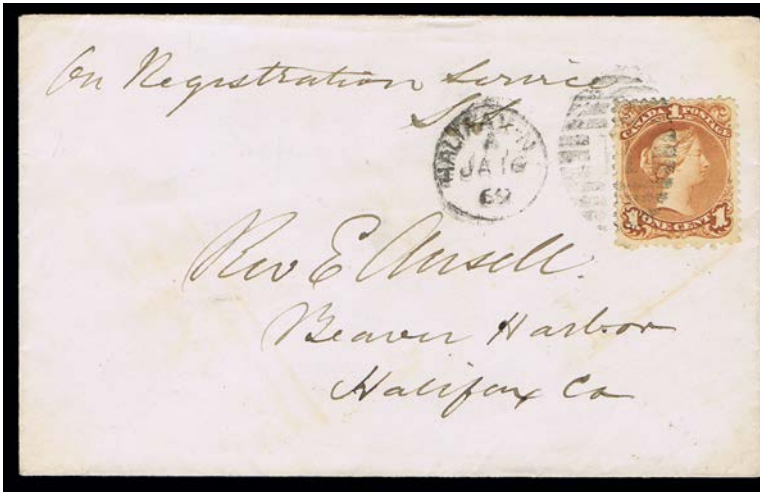 On Registration Service
HALIFAX N
JA 16
69
CANADA POSTAGE
1
1 ONE CENT 1
Rev E Ansell.
Beaver Harbor
Halifax Co